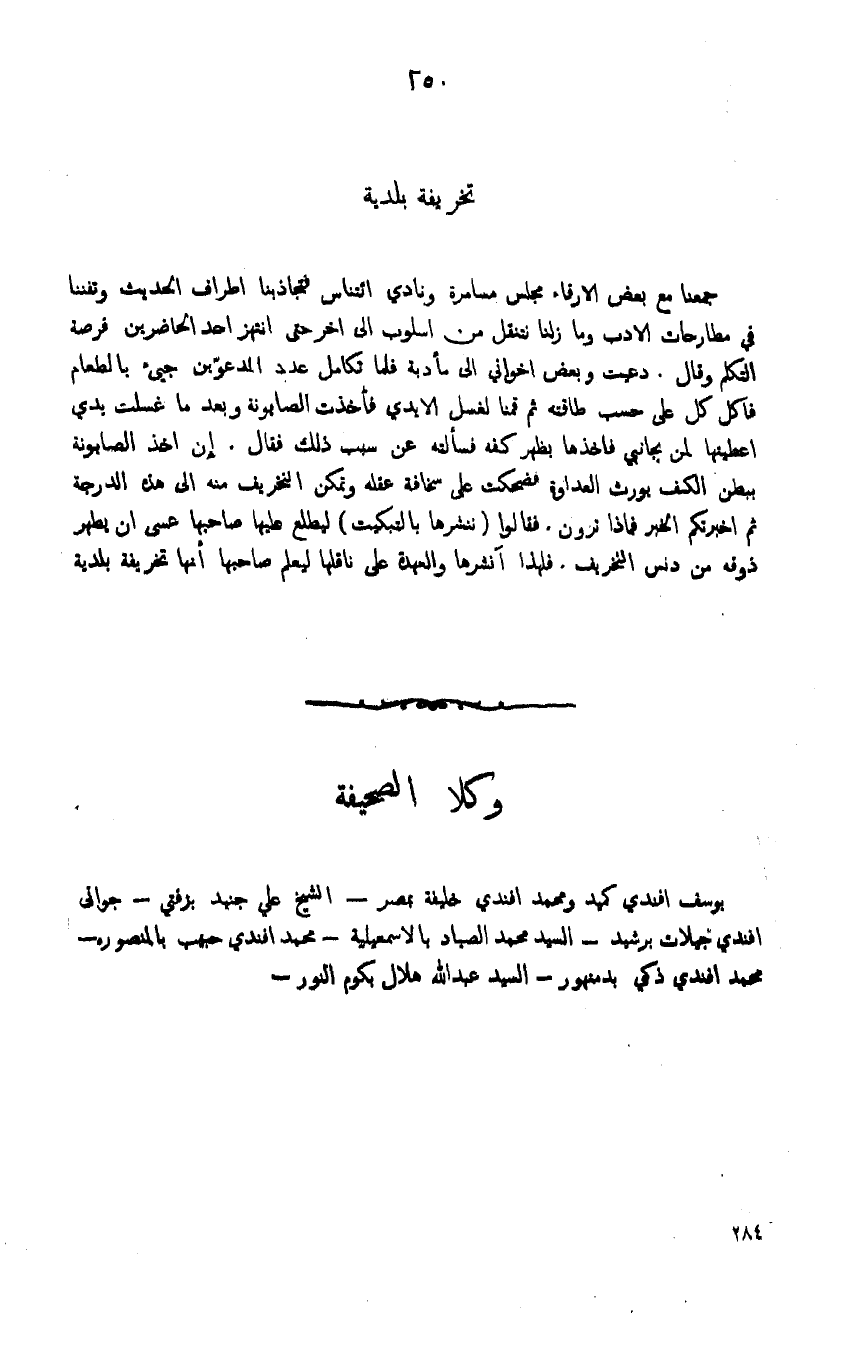 ٢٥٠
تخريفة بلدية
جمعنا مع بعض الارقاء مجلس مسامرة ونادي ائتناس فتجاذبنا اطراف الحديث وتفننا
في مطارحات الادب وما زلنا ننتقل من اسلوب الى اخر حتى انتهز احد الحاضرين فرصة
التكلم وقال . دعيت وبعض اخواني الى مأدبة فلما تكامل عدد المدعوّين جيىء بالطعام
فاكل كل على حسب طاقته ثم قمنا لغسل الايدي فأخذت الصابونة وبعد ما غسلت يدي
اعطيتها لمن بجانبي فاخذها بظهر كفه فسألته عن سبب ذلك فقال . إن اخذ الصابونة
ببطن الكف يورث العداوة فضحكت على سخافة عقله وتمكن التخريف منه الى هذه الدرجة
ثم اخبرتكم الخبر فماذا ترون . فقالوا ( ننشرها بالتبكيت ) ليطلع عليها صاحبها عسى ان يطهر
ذوقه من دنس التخريف . فلهذا أنشرها والعهدة على ناقلها ليعلم صاحبها أنها تخريفة بلدية
وكلا الصحيفة
يوسف افندي كميد ومحمد افندي خليفة بمصر — الشيخ علي جنيد بزفتي — جواني
افندي جيلات برشيد — السيد محمد الصياد بالاسمعيلية — محمد افندي حبيب بالمنصوره —
محمد افندي ذكي بدمنهور — السيد عبدالله هلال بكوم النور —
٢٨٤